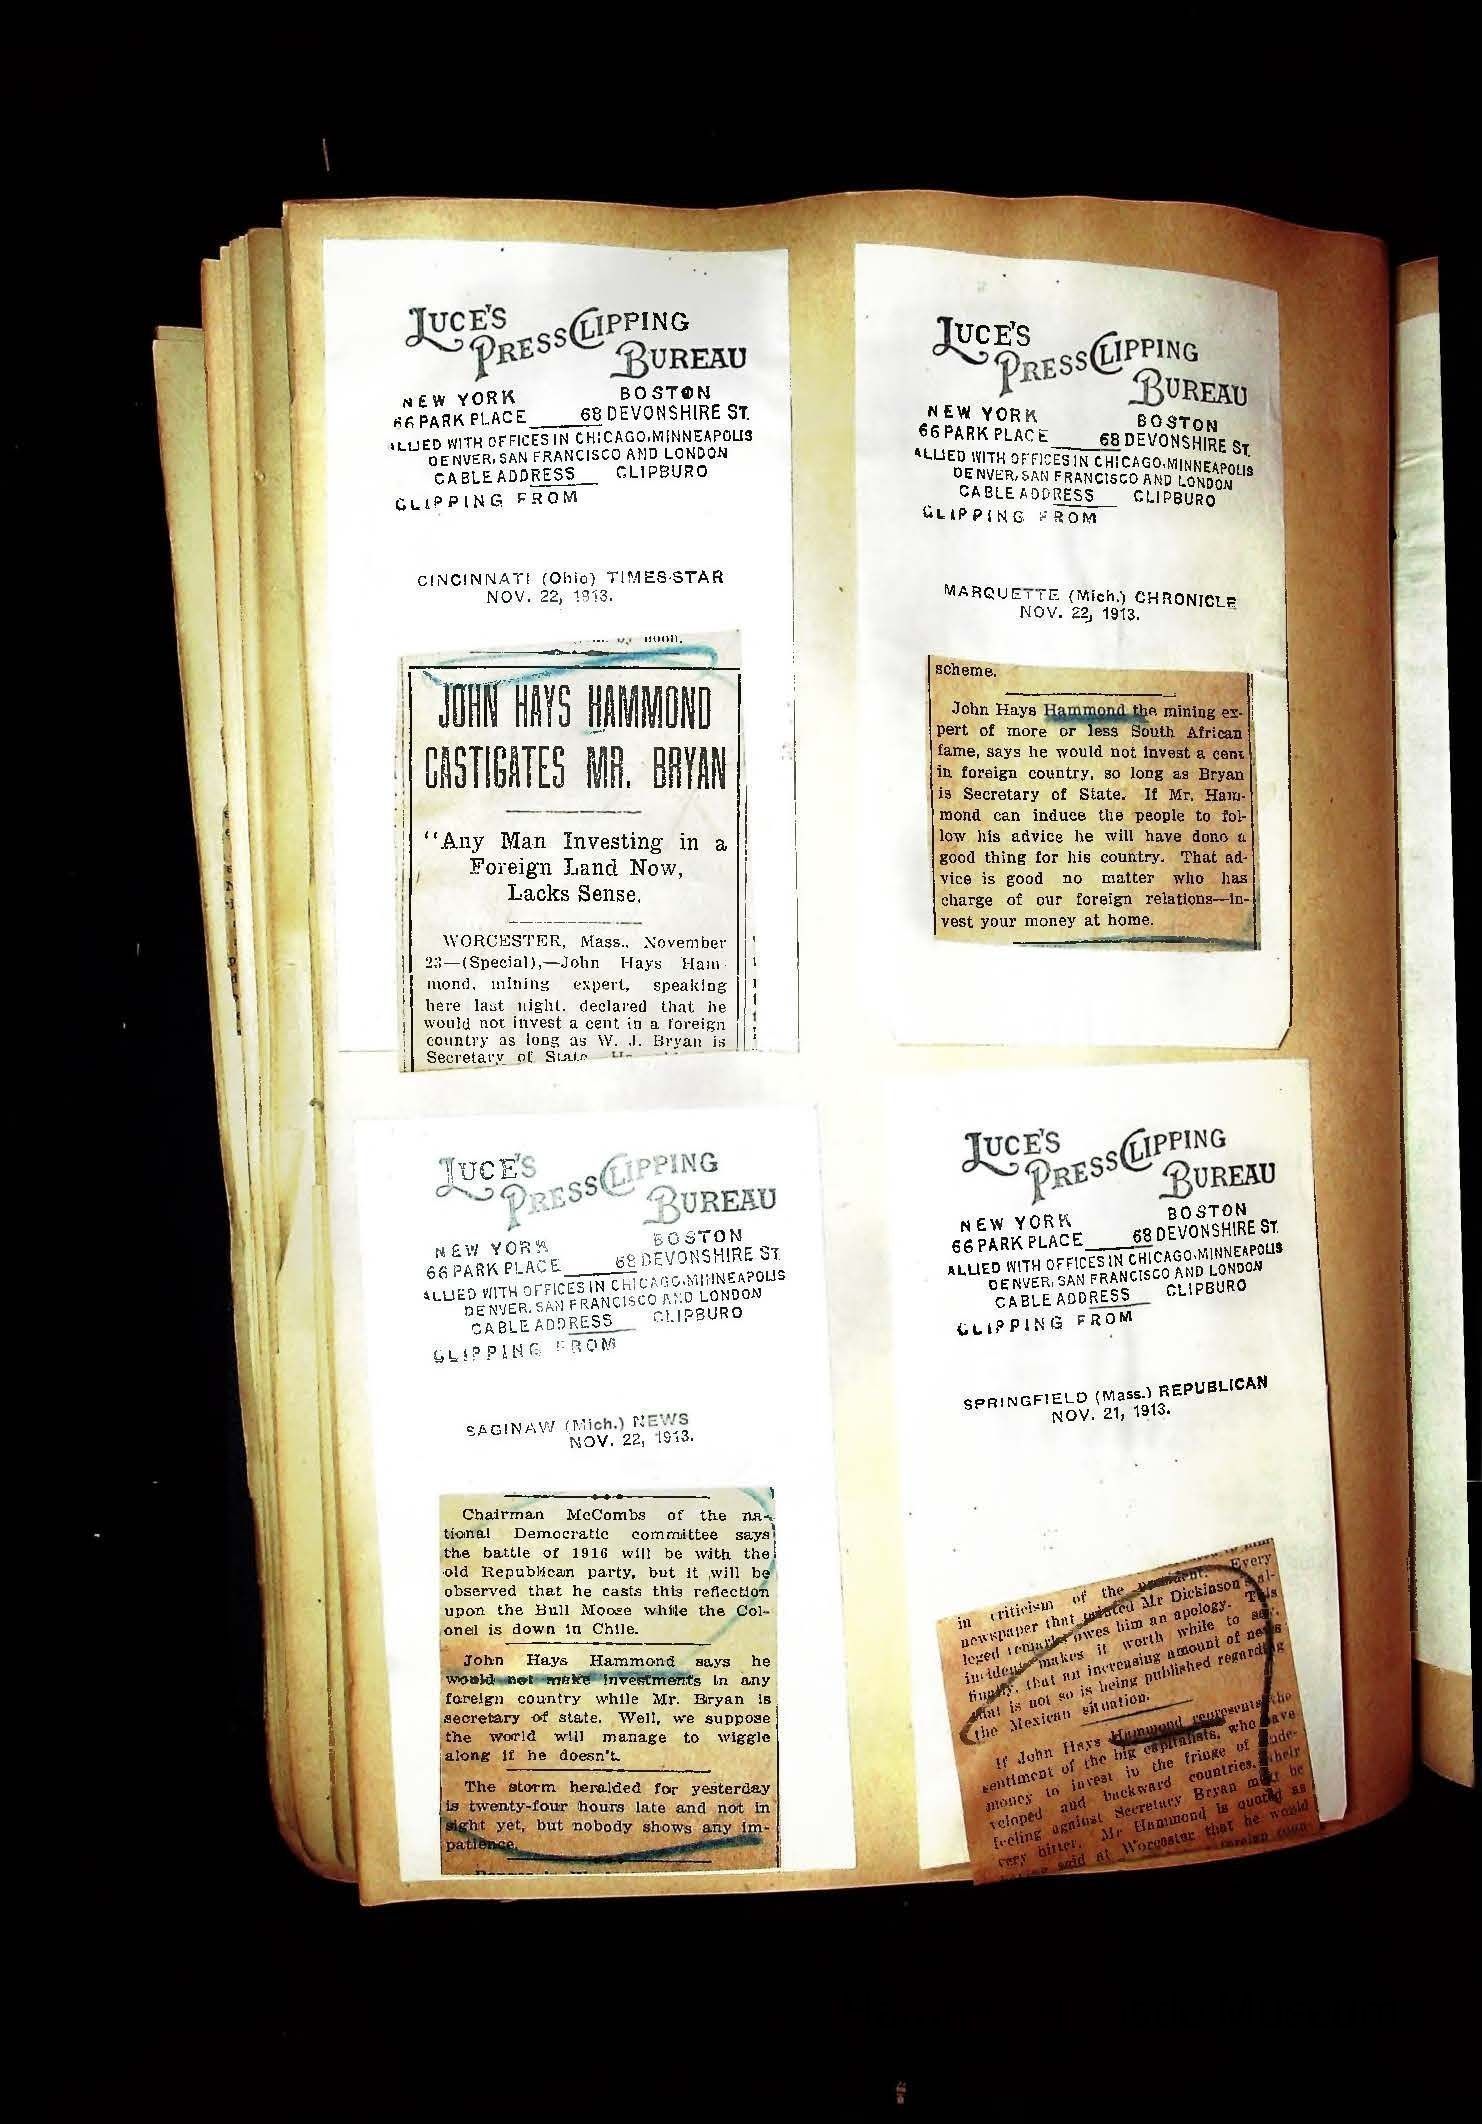 LUCE'S
PRESS CLIPPING
BUREAU
NEW YORK BOSTON
66 PARK PLACE 68 DEVONSHIRE ST.
ALLIED WITH OFFICES IN CHICAGO, MINNEAPOLIS
DENVER, SAN FRANCISCO AND LONDON
CABLE ADDRESS CLIPBURO
CLIPPING FROM
CINCINNATI (Ohio) TIMES-STAR
NOV. 22, 1913.
noon.
JOHN HAYS HAMMOND
CASTIGATES MR. BRYAN
"Any Man Investing in a
Foreign Land Now,
Lacks Sense.
WORCESTER, Mass., November
23—(Special),—John Hays Ham
mond, mining expert, speaking
here last night, declared that he
would not invest a cent in a foreign
country as long as W. J. Bryan is
Secretary of State
LUCE'S
PRESS CLIPPING
BUREAU
NEW YORK BOSTON
66 PARK PLACE 68 DEVONSHIRE ST.
ALLIED WITH OFFICES IN CHICAGO, MINNEAPOLIS
DENVER, SAN FRANCISCO AND LONDON
CABLE ADDRESS CLIPBURO
CLIPPING FROM
MARQUETTE (Mich.) CHRONICLE
NOV. 22, 1913.
scheme.
John Hays Hammond the mining ex-
pert of more or less South African
fame, says he would not invest a cent
in foreign country, so long as Bryan
is Secretary of State. If Mr. Ham-
mond can induce the people to fol-
low his advice he will have done a
good thing for his country. That ad-
vice is good no matter who has
charge of our foreign relations—in-
vest your money at home.
LUCE'S
PRESS CLIPPING
BUREAU
NEW YORK BOSTON
66 PARK PLACE 68 DEVONSHIRE ST.
ALLIED WITH OFFICES IN CHICAGO, MINNEAPOLIS
DENVER, SAN FRANCISCO AND LONDON
CABLE ADDRESS CLIPBURO
CLIPPING FROM
SAGINAW (Mich.) NEWS
NOV. 22, 1913.
Chairman McCombs of the na-
tional Democratic committee says
the battle of 1916 will be with the
old Republican party, but it will be
observed that he casts this reflection
upon the Bull Moose while the Col-
onel is down in Chile.
John Hays Hammond says he
would not make investments in any
foreign country while Mr. Bryan is
secretary of state. Well, we suppose
the world will manage to wiggle
along if he doesn't.
The storm heralded for yesterday
is twenty-four hours late and not in
sight yet, but nobody shows any im-
patience.
LUCE'S
PRESS CLIPPING
BUREAU
NEW YORK BOSTON
66 PARK PLACE 68 DEVONSHIRE ST.
ALLIED WITH OFFICES IN CHICAGO, MINNEAPOLIS
DENVER, SAN FRANCISCO AND LONDON
CABLE ADDRESS CLIPBURO
CLIPPING FROM
SPRINGFIELD (Mass.) REPUBLICAN
NOV. 21, 1913.
in criticism of the president. Every
newspaper that printed Mr Dickinson's al-
leged remarks owes him an apology. This
incident makes it worth while to say,
finally, that an increasing amount of news
that is not so is being published regarding
the Mexican situation.
If John Hays Hammond represents the
sentiment of the big capitalists, who have
money to invest in the fringe of unde-
veloped and backward countries, their
feeling against Secretary Bryan must be
very bitter. Mr Hammond is quoted as
said at Worcester that he would
foreign coun-